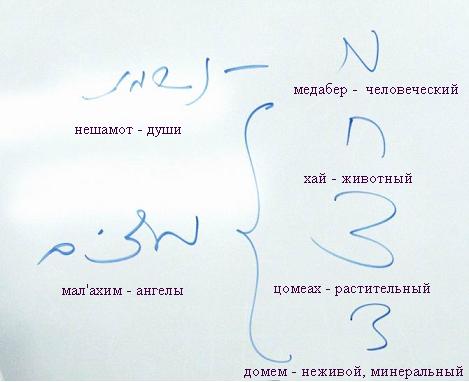 נשמות – מ
медабер - человеческий
нешамот - души
ח
хай - животный
מלאכים
צ
мал'ахим - ангелы
цомеах - растительный
ד
домем - неживой, минеральный